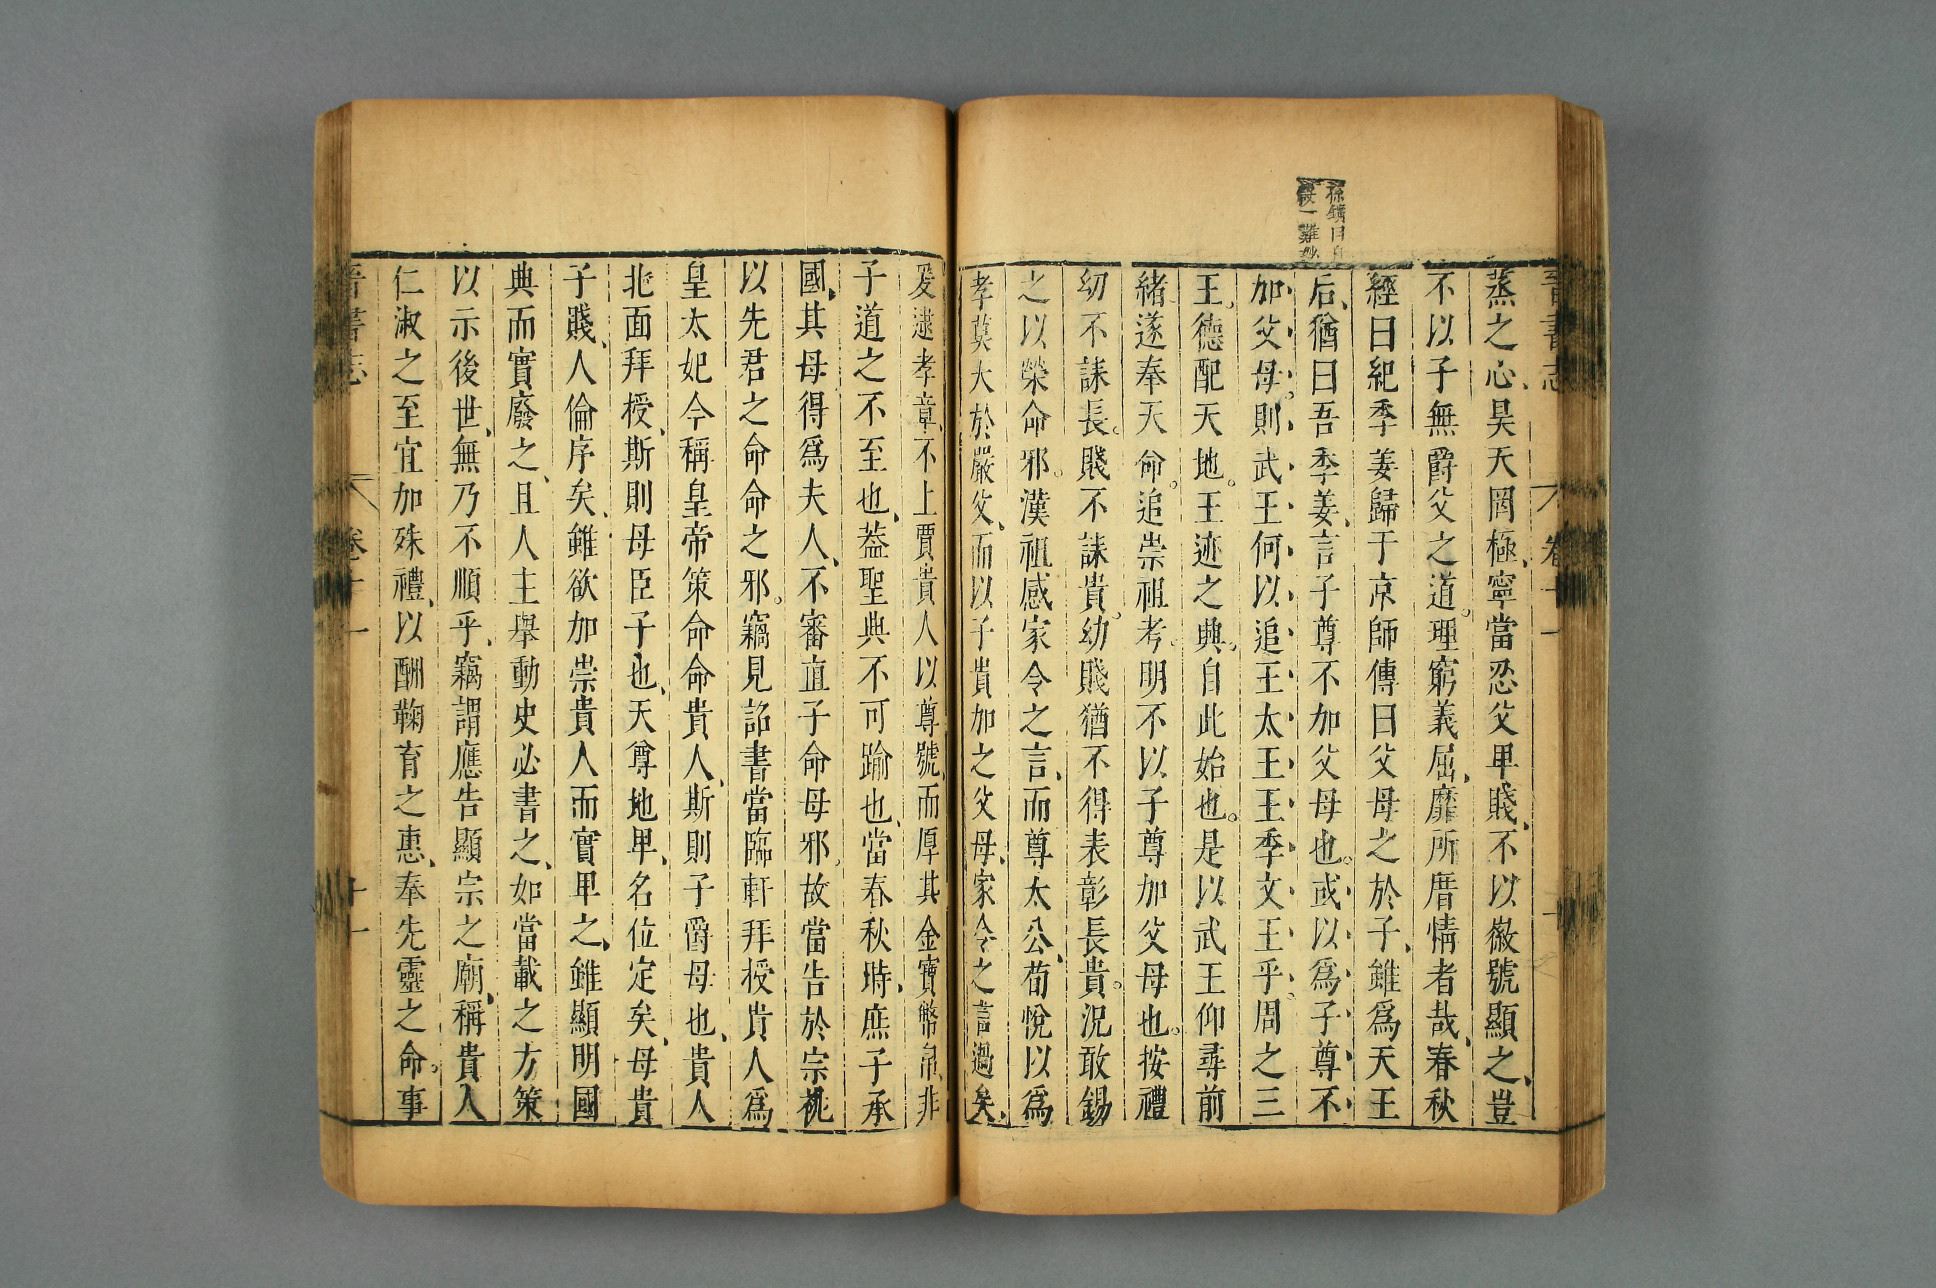 晉書志
卷十一
蒸之心昊天罔極寧當忍父卑賤不以徽號顯之豈
不以子無爵父之道理窮義屈靡所厝情者哉春秋
經曰紀季姜歸于京師傳曰父母之於子雖爲天王
后猶曰吾季姜言子尊不加父母也或以爲子尊不
加父母則武王何以追王太王王季文王乎周之三
王德配天地王迹之興自此始也是以武王仰尋前
緒遂奉天命追崇祖考明不以子尊加父母也按禮
幼不誄長賤不誄貴幼賤猶不得表彰長貴況敢錫
之以榮命邪漢祖感家令之言而尊太公荀悅以爲
孝莫大於嚴父而以子貴加之父母家令之言過矣
爰逮孝章不上賈貴人以尊號而厚其金寶幣帛非
子道之不至也蓋聖典不可踰也當春秋時庶子承
國其母得爲夫人不審直子命母邪故當告於宗祧
以先君之命命之邪竊見詔書當臨軒拜授貴人爲
皇太妃今稱皇帝策命命貴人斯則子爵母也貴人
北面拜授斯則母臣子也天尊地卑名位定矣母貴
子賤人倫序矣雖欲加崇貴人而實卑之雖顯明國
典而實廢之且人主舉動史必書之如當載之方策
以示後世無乃不順乎竊謂應告顯宗之廟稱貴人
仁淑之至宜加殊禮以酬鞠育之惠奉先靈之命事
晉書志
卷十一
十一